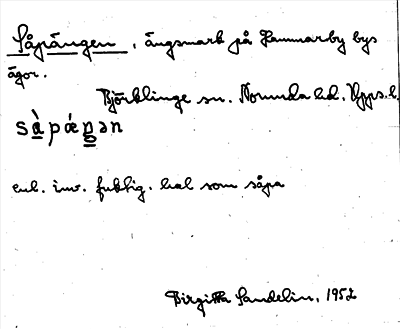 Såpängen, ängsmark på Hammarby bys
ägor.
Björklinge sn. Norunda hd. Upps. l.
sàpáŋən
enl. inv. fuktig. hal som såpa
Birgitta Sandelin, 1952